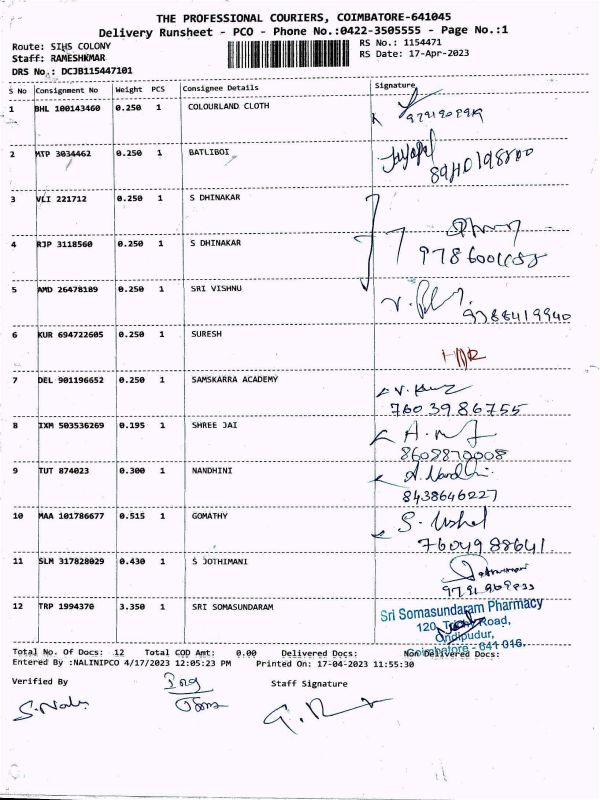 THE PROFESSIONAL COURIERS, COIMBATORE-641045
Delivery Runsheet - PCO - Phone No.:0422-3505555 - Page No.:1
Route: SIHS COLONY
RS No.: 1154471
Staff: RAMESHKMAR
RS Date: 17-Apr-2023
DRS No.: DCJB115447101
S No Consignment No Weight PCS Consignee Details Signature
1 BHL 100143460 0.250 1 COLOURLAND CLOTH
2 MTP 3034462 0.250 1 BATLIBOI
8940198800
3 VLI 221712 0.250 1 S DHINAKAR
4 RJP 3118560 0.250 1 S DHINAKAR
5 AMD 26478189 0.250 1 SRI VISHNU
9788419940
6 KUR 694722605 0.250 1 SURESH
7 DEL 901196652 0.250 1 SAMSKARRA ACADEMY
7603986755
8 IXM 503536269 0.195 1 SHREE JAI
8608870008
9 TUT 874023 0.300 1 NANDHINI
A. Nandhini
8438646227
10 MAA 101786677 0.515 1 GOMATHY
S. Ushal
7604988641.
11 SLM 317828029 0.430 1 S JOTHIMANI
12 TRP 1994370 3.350 1 SRI SOMASUNDARAM
Sri Somasundaram Pharmacy
120, Road,
Ondipudur,
Coimbatore - 641 016.
Total No. Of Docs: 12 Total COD Amt: 0.00 Delivered Docs: Non Delivered Docs:
Entered By :NALINIPCO 4/17/2023 12:05:23 PM Printed On: 17-04-2023 11:55:30
Verified By
Staff Signature